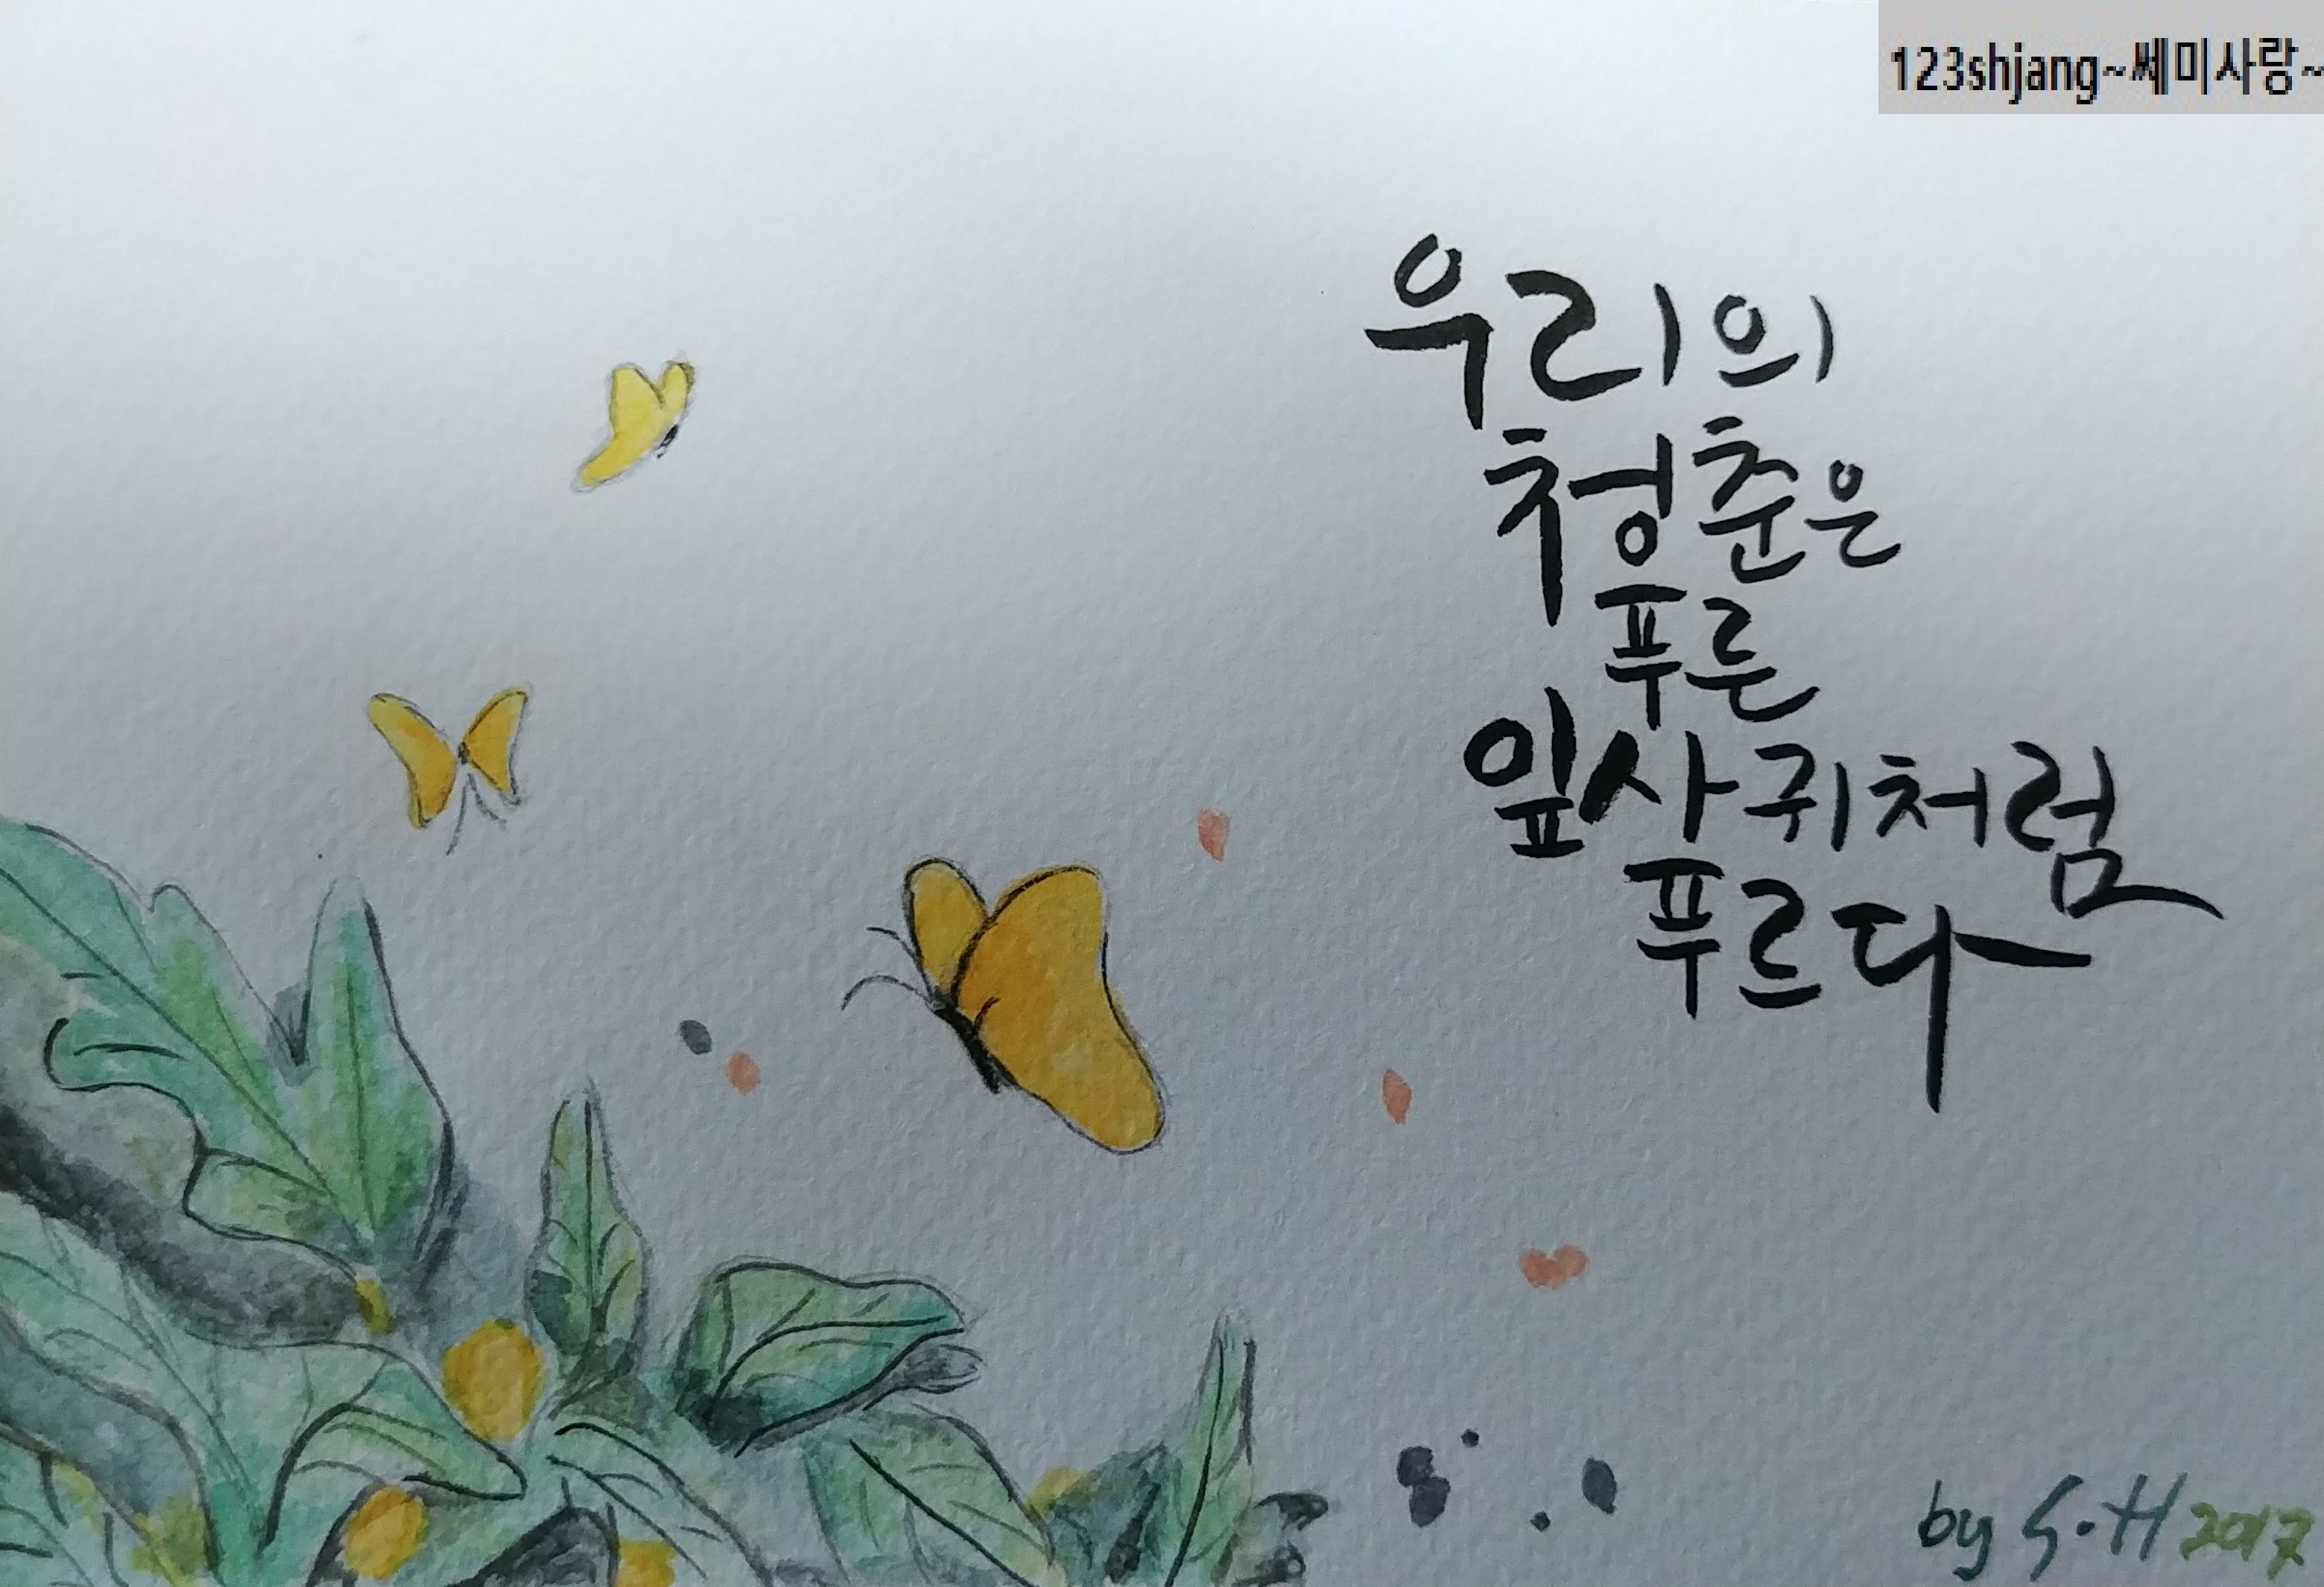 123shjang~쎄미사랑~
우리의
청춘은
푸른
잎사귀처럼
푸르다
by S.H 2017